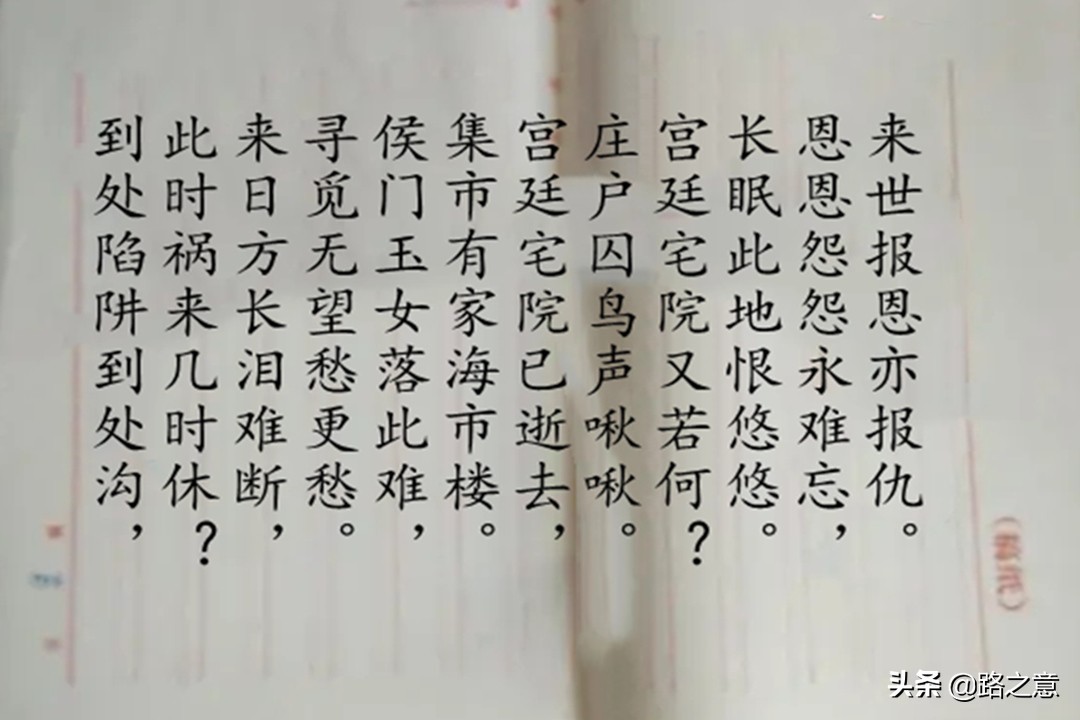 到处陷阱到处沟，
此时祸来几时休？
来日方长泪难断，
寻觅无望愁更愁。
侯门玉女落此难，
集市有家海市楼。
宫廷宅院已逝去，
庄户囚鸟声啾啾。
宫廷宅院又若何？
长眠此地恨悠悠。
恩恩怨怨永难忘，
来世报恩亦报仇。
头条 @路之意